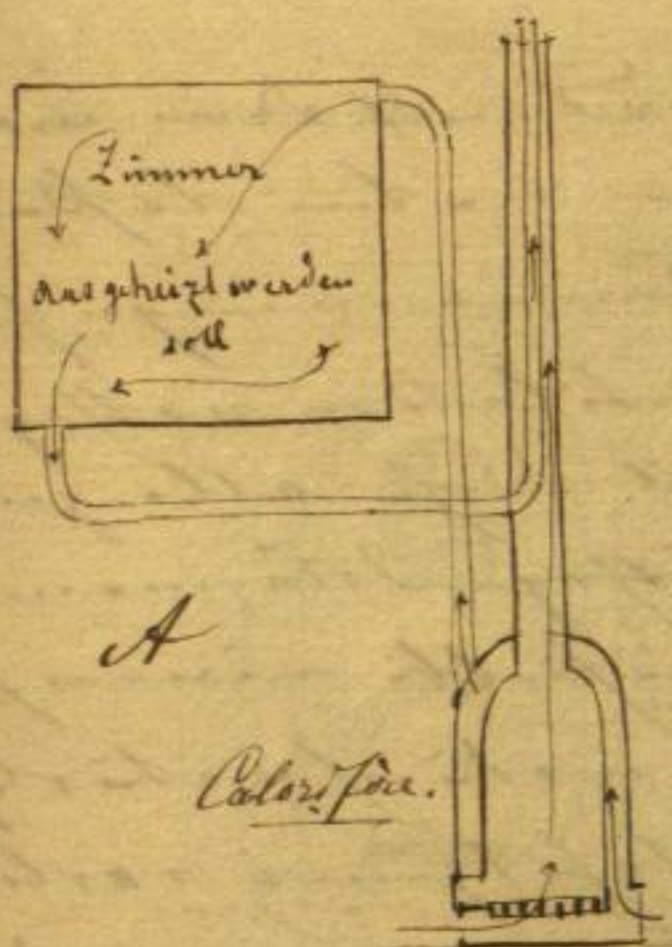 Zimmer
das geheizt werden
soll
A
Calorifère.